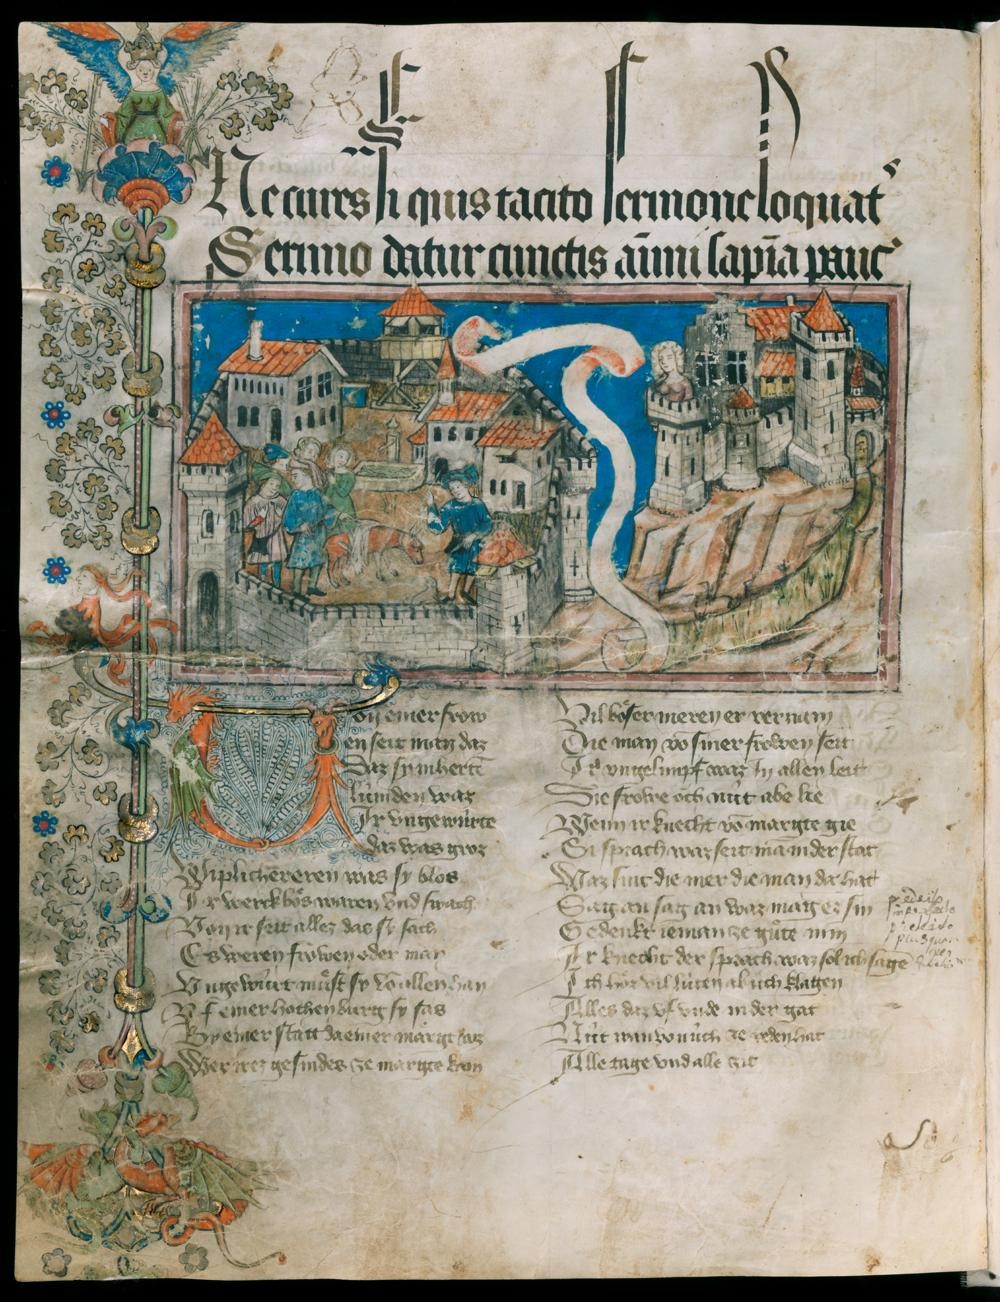 Ne cures si quis tacito sermone loquat᷒
Sermo datur cunctis aīmi sapīa pauc᷒
Von einer frow
en seit man daz
Daz sy in herte
lúmden was
Ir vngewúrte
daz was groz
Wiplicher eren was sy blos
Ir werck bôs waren vnd swach
Von ir seit allez das sy sach
Es weren frowen oder man
Vngewúrt můst sy võ allen han
Vf einer hochen burg sy sas
By einer statt da einer mårgt waz
Wer irez gesindes ze margte kam
Vil bôser meren er vernam
Die man võ siner frowen seit
Ir vngelimpf waz In allen leit
Die frowe och nút abe lie
Wenn ir knecht võ margte gie
Si sprach waz seit mã in der stat
Waz sint die mer die man da hat
Sag an sag an waz mag ez sin
Gedenkt ieman ze gůte min
Ir knecht der sprach waz sol ich sage
Ich hôr vil lúten ab úch klagen
Alles daz vf vnde in der gat
Nút wan von úch ze reden hat
Alle tage vnd alle zit